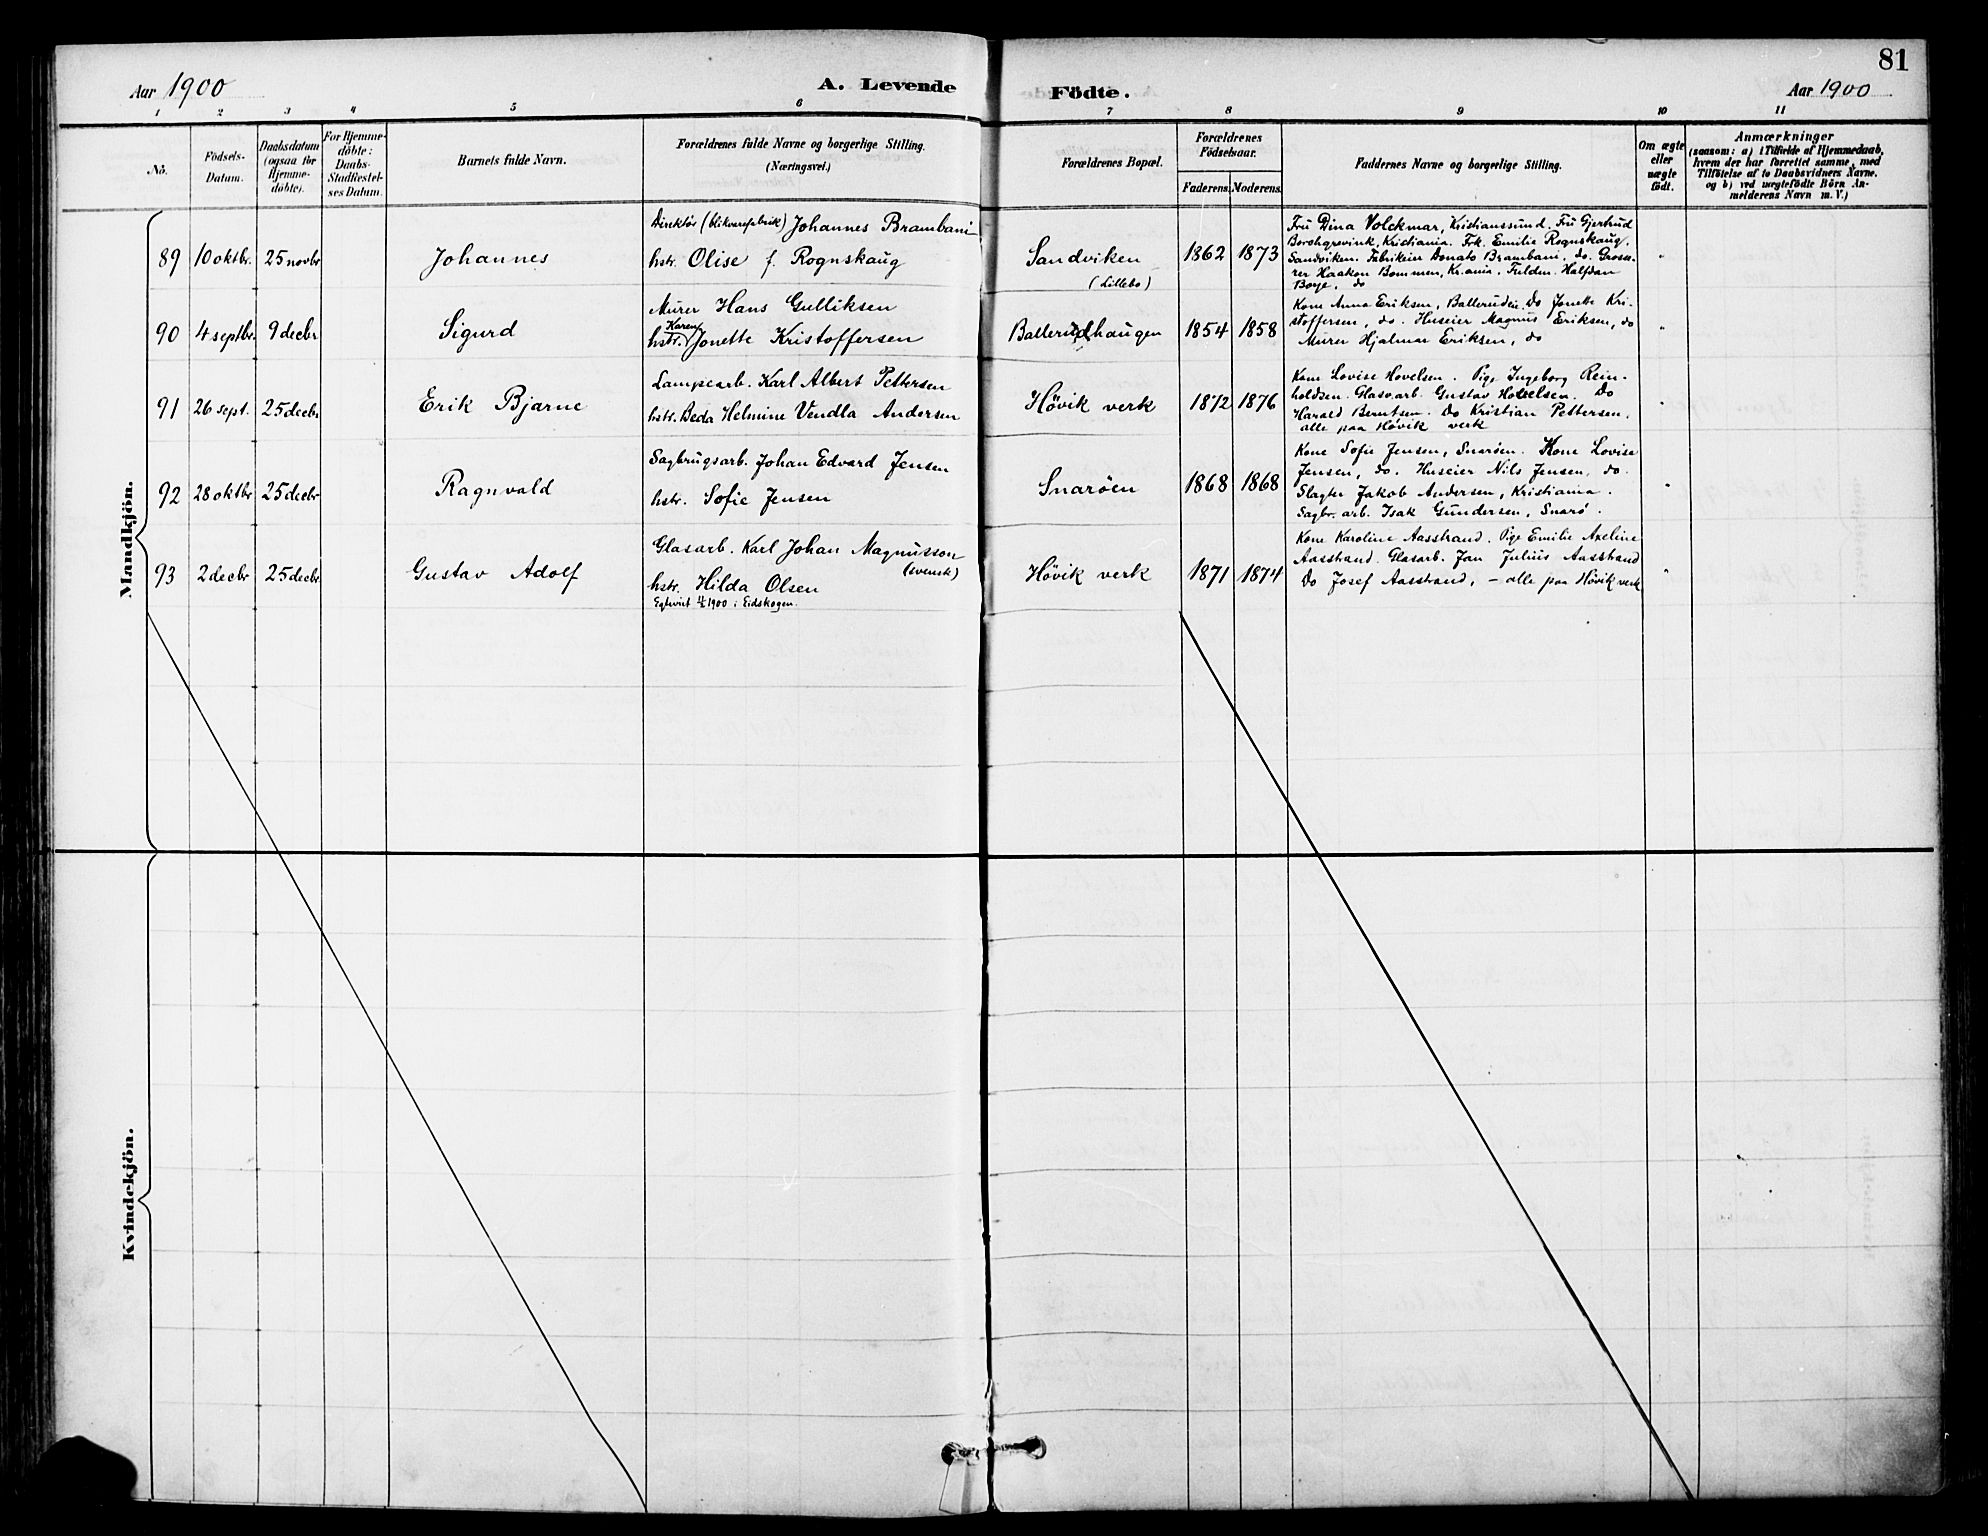 81
Aar 1900
A. Levende Födte.
Aar 1900
1 2 3 4 5 6 7 8 9 10 11
No.
Födsels-Datum.
Daabsdatum (ogsaa for Hjemme-döbte).
For Hjemme-döbte: Daabs-Stadfæstel-ses Datum.
Barnets fulde Navn.
Forældrenes fulde Navne og borgerlige Stilling. (Næringsvei.)
Forældrenes Bopæl.
Forældrenes Födselsaar.
Faderens. Moderens.
Faddernes Navne og borgerlige Stilling.
Om ægte eller uægte födt.
Anmærkninger
(saasom: a) i Tilfælde af Hjemmedaab,
hvem der har forrettet samme, med
Tilföielse af to Daabsvidners Navne.
og b) ved uægtefödte Börn An-
melderens Navn m. V.)
Mandkjön.
89 10 oktbr. 25 novbr Johannes
Direktör (blikvarefabrik) Johannes Brambani
hstr. Olise f. Rognskaug
Sandviken
(Lillebo)
1862 1873
Fru Dina Volckmar, Kristianssund. Fru Gjertrud
Borchgrevink, Kristiania. Frk. Emilie Rognskaug,
Sandviken. Fabrikeier Donato Brambani, do. Gross-
rer Haakon Bommen, Kr.ania. Fuldm. Halfdan
Boye, do
"
90 4 septbr. 9 decbr Sigurd
Murer Hans Gulliksen
Karen
hstr. Jonette Kristoffersen
Ballerudhaugen
1854 1858
Kone Anna Eriksen, Ballerudeie. Do Jonette Kri-
stoffersen, do. Huseier Magnus Eriksen, do
Murer Hjalmar Eriksen, do
"
91 26 sept. 25 decbr Erik Bjarne
Lampearb. Karl Albert Pettersen
hstr. Beda Helmine Vendla Andersen
Hövik verk
1872 1876
Kone Lovise Hovelsen. Pige Ingeborg Rein-
holdsen. Glasv.arb. Gustav Hovelsen. Do
Harald Berntsen. Do Kristian Pettersen,
alle paa Hövik verk
"
92 28 oktbr 25 decbr Ragnvald
Sagbrugsarb. Johan Edvard Jensen
hstr. Sofie Jensen
Snaröen
1868 1868
Kone Sofie Jensen, Snaröen. Kone Lovise
Jensen, do. Huseier Nils Jensen, do.
Slagter Jakob Andersen, Kristiania.
Sagbr. arb. Isak Gundersen, Snarö.
"
93 2 decbr 25 decbr Gustav Adolf
Glasarb. Karl Johan Magnusson
(svensk)
hstr. Hilda Olsen
1900 i Eidskogen.
Hövik verk
1871 1874
Kone Karoline Aasstrand. Pige Emilie Axeline
Aasstrand. Glasarb. Jan Julius Aasstrand
Do Josef Aasstrand, - alle paa Hövik verk
"
Kvindekjön.